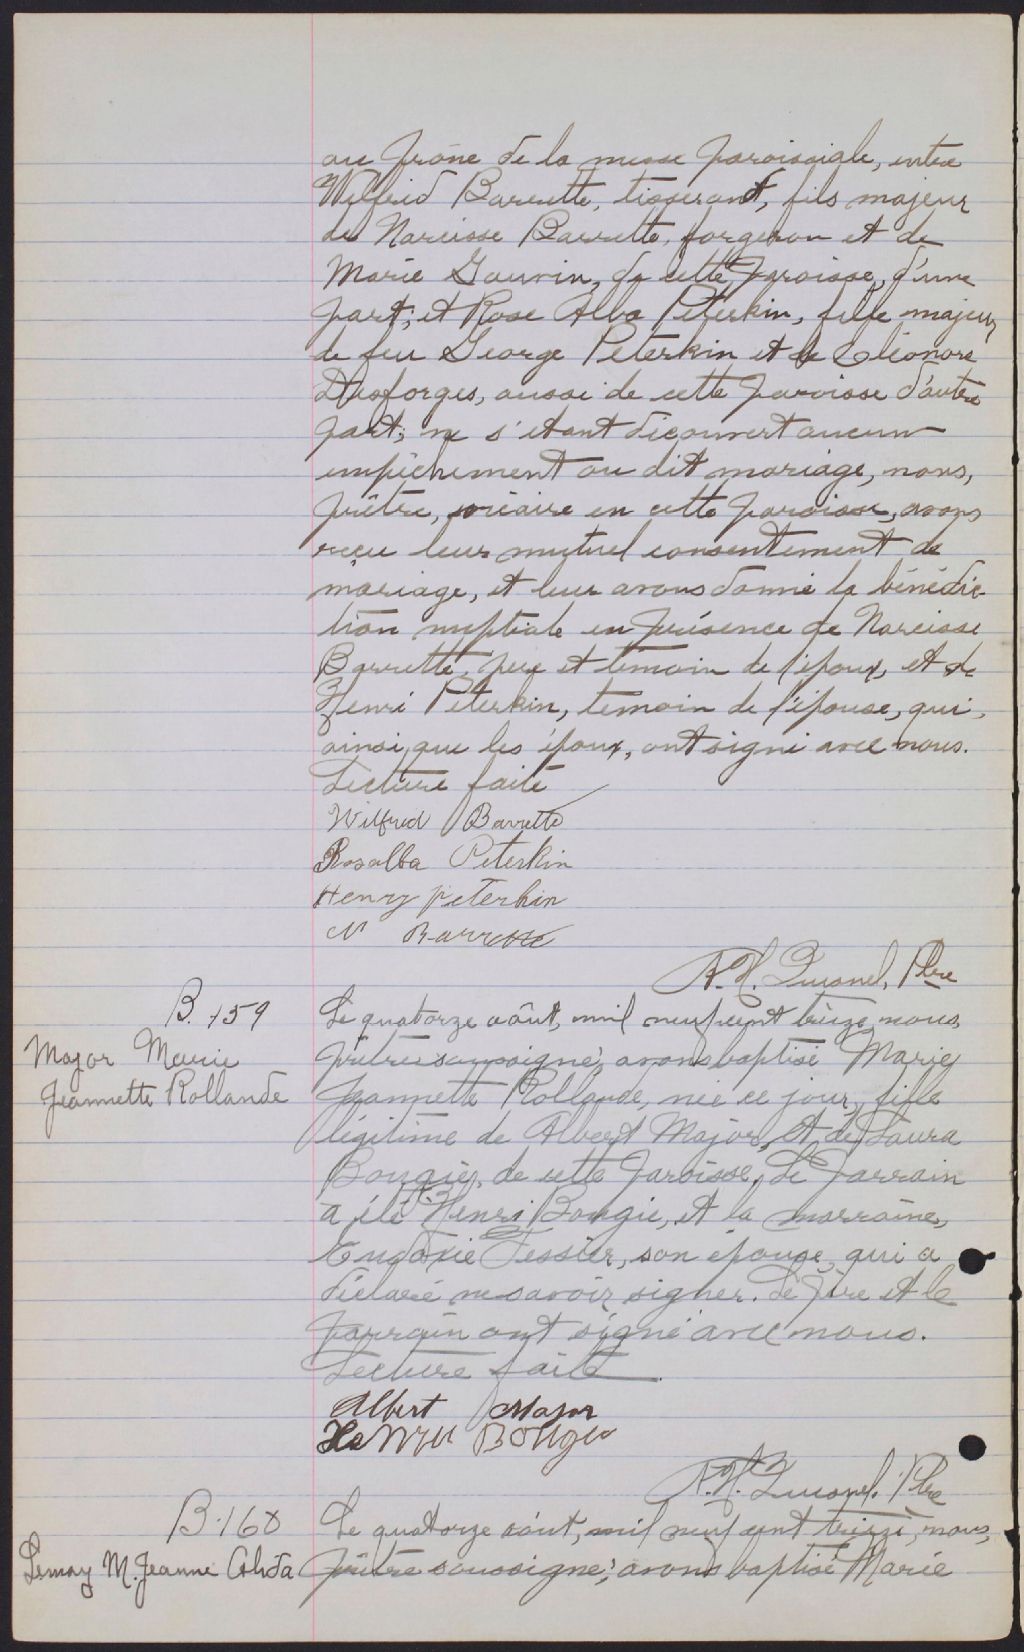 au prône de la messe paroissiale, entre
Wilfrid Barrette, tisserand, fils majeur
de Narcisse Barrette, forgeron et de
Marie Gauvin, de cette paroisse, d'une
part; et Rose Alba Peterkin, fille majeure
de feu George Peterkin et de Eléonore
Desforges, aussi de cette paroisse d'autre
part; ne s'étant découvert aucun
empêchement au dit mariage, nous,
prêtre, vicaire en cette paroisse, avons
reçu leur mutuel consentement de
mariage, et leur avons donné la bénédic-
tion nuptiale en présence de Narcisse
Barrette, père et témoin de l'époux, et de
Henri Peterkin, témoin de l'épouse, qui,
ainsi que les époux, ont signé avec nous.
Lecture faite
Wilfrid Barrette
Rosalba Peterkin
Henry Peterkin
N Barrette
Ptre
B. 159
Major Marie
Jeannette Rollande
Le quatorze août, mil neuf cent treize nous
prêtre soussigné, avons baptisé Marie
Jeannette Rollande, née ce jour, fille
légitime de Albert Major, et de Laura
Bougie, de cette paroisse. Le parrain
a été Henri Bougie, et la marraine,
Eudoxie Tessier, son épouse, qui a
déclaré ne savoir signer. Le père et le
parrain ont signé avec nous.
Lecture faite
Albert Major
Henri Bougie
Ptre
B. 160
Lemay M. Jeanne Alida
Le quatorze août, mil neuf cent treize, nous,
prêtre soussigné, avons baptisé Marie